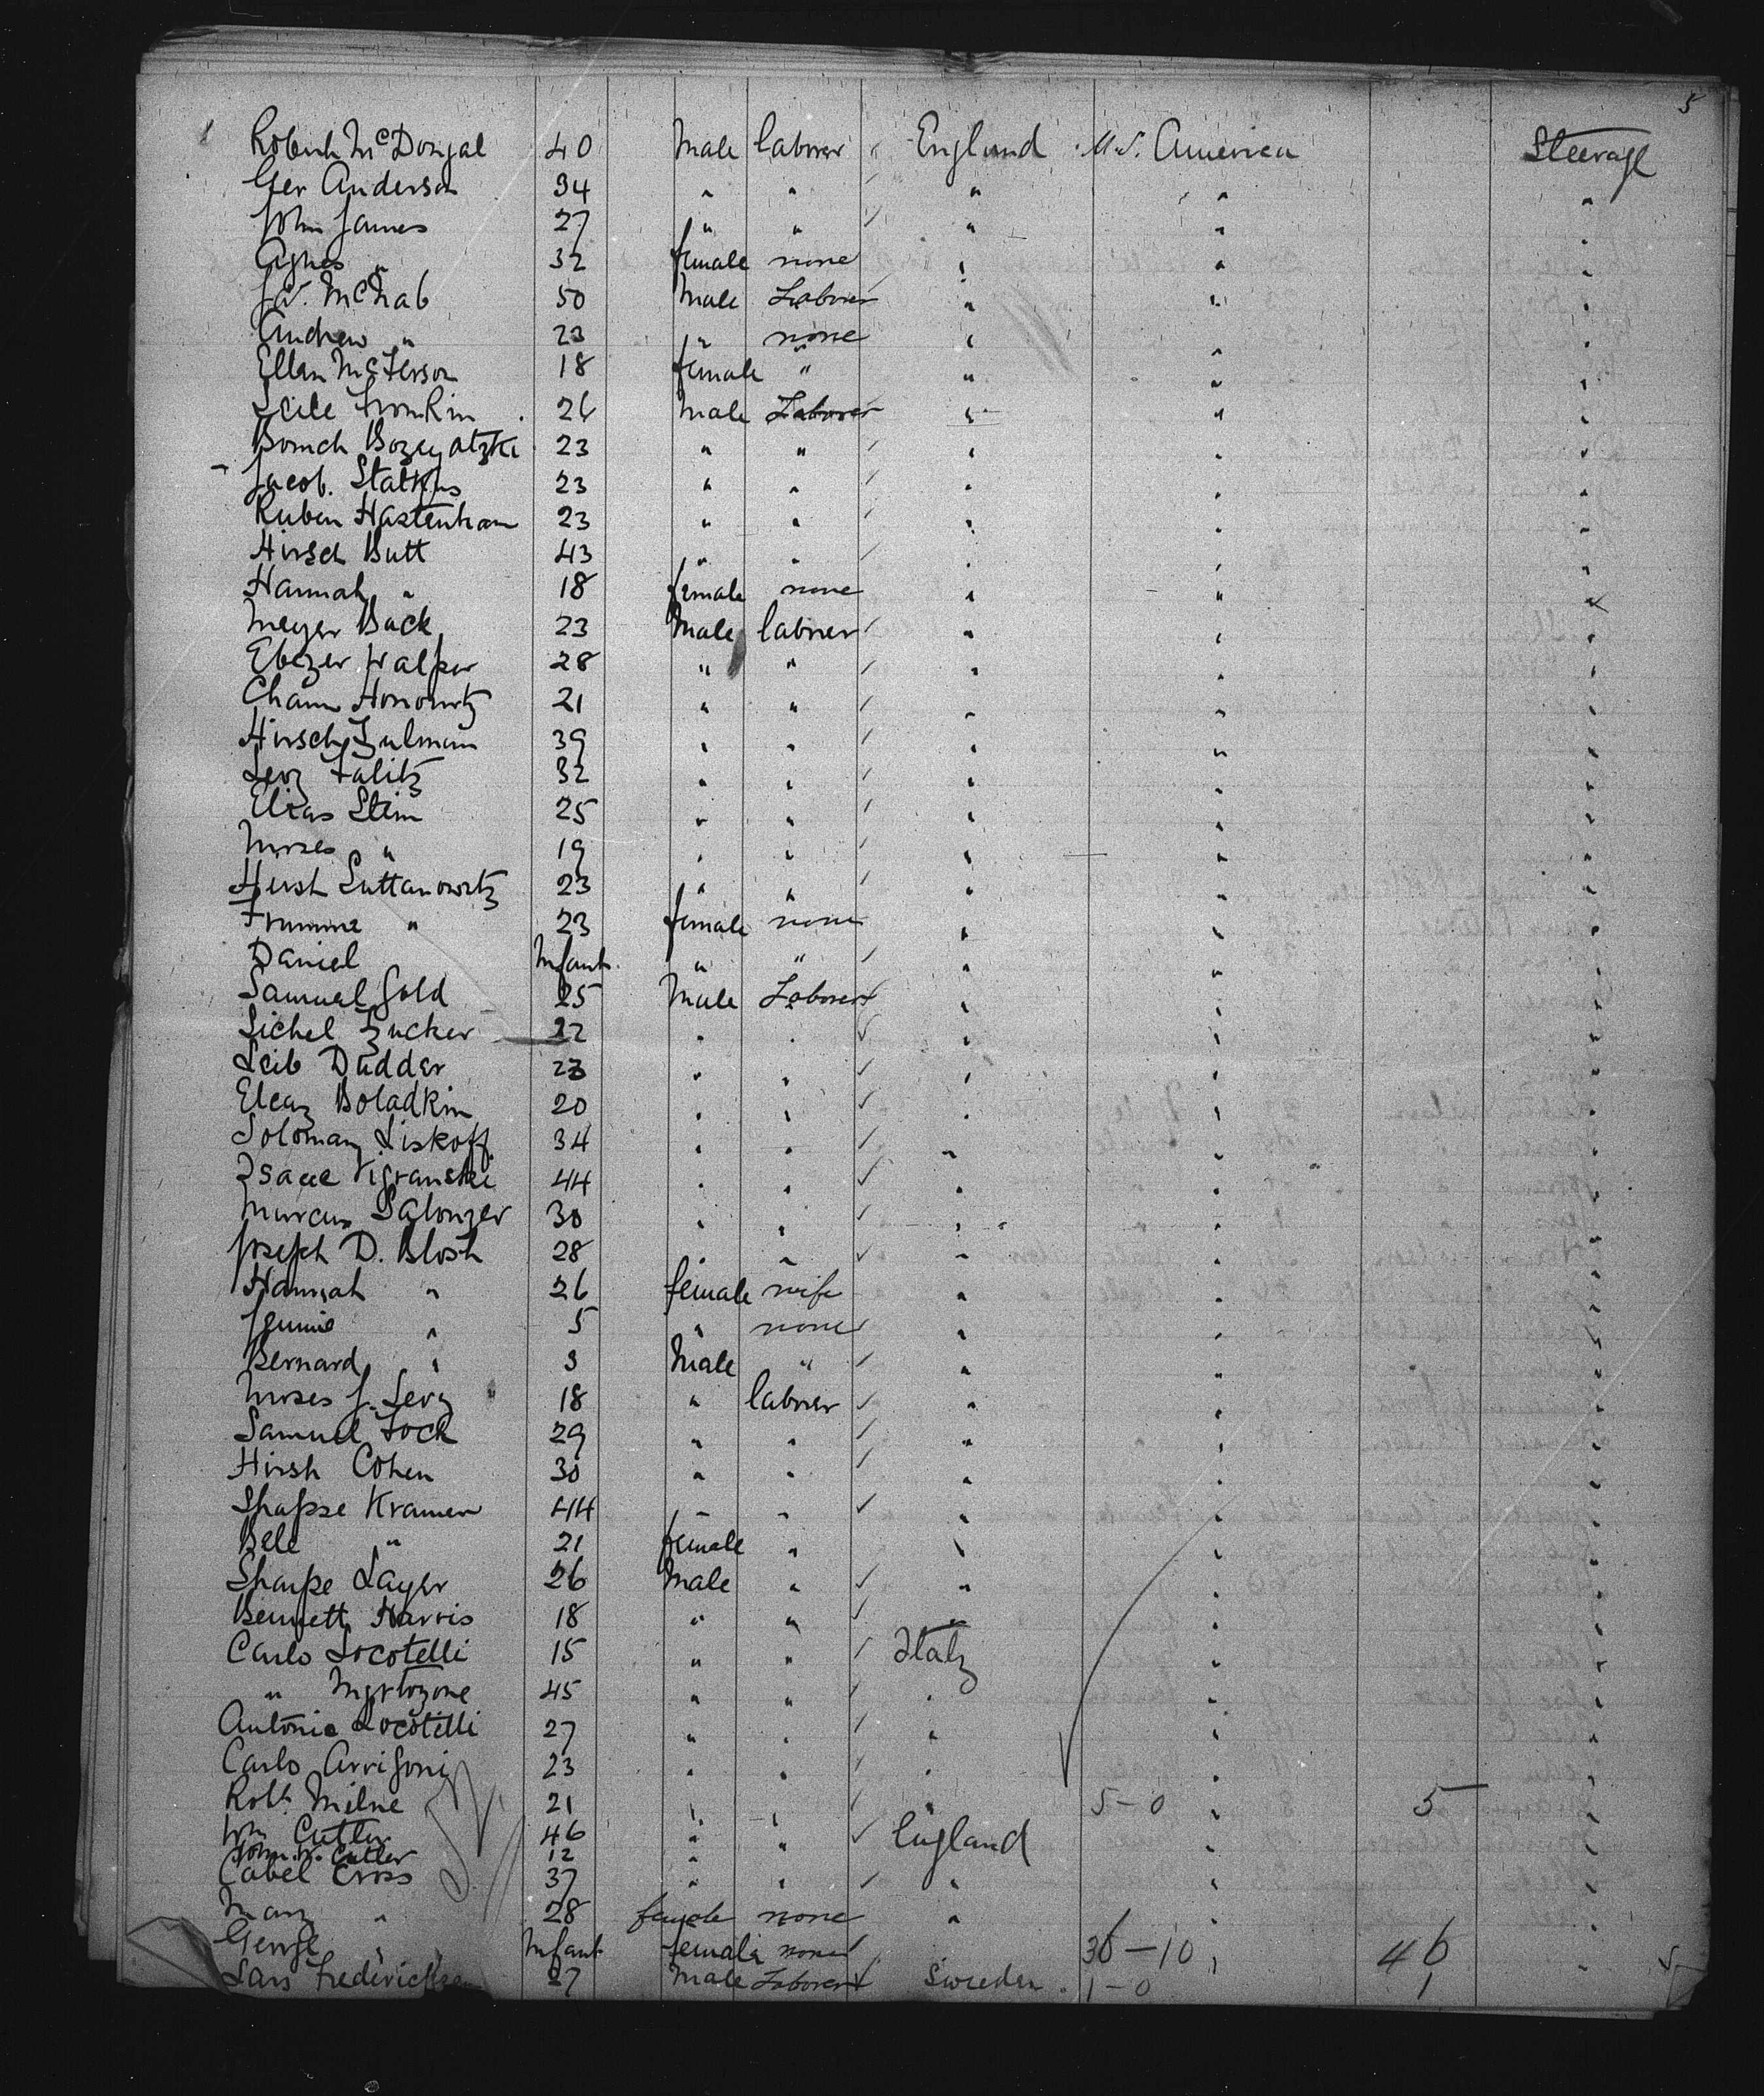 5
Robert McDougal 40 Male laborer England U.S. America Steerage
Geo Anderson 34 " " " " "
John James 27 " " " " "
Agnes " 32 female none " " "
Jas. McNab 50 Male Laborer " " "
Andrew " 23 " none " " "
Ellen 18 female " " " "
26 Male Laborer " " "
23 " " " " "
Jacob. 23 " " " " "
Ruben 23 " " " " "
Hirsch Butt 43 " " " " "
Hannah " 18 female none " " "
Meyer Back 23 Male laborer " " "
Ebezer Halper 28 " " " " "
Chaim Horowitz 21 " " " " "
Hirsch Zulman 39 " " " " "
Levy 32 " " " " "
Elias Stein 25 " " " " "
Moses " 19 " " " " "
Hirsh Luttanowitz 23 " " " " "
Frumme " 23 female none " " "
Daniel Infant " " " " "
Samuel Gold 25 Male Laborer " " "
Sichel Zucker 22 " " " " "
Leib Dudder 23 " " " " "
Eleaz Boladkin 20 " " " " "
Soloman Liskoff 34 " " " " "
Isaac Vigranski 44 " " " " "
Marcus 30 " " " " "
Joseph D. Blosh 28 " " " " "
Hannah " 26 female wife " " "
Jennie " 5 " none " " "
Bernard " 3 Male " " " "
Moses J. Levy 18 " laborer " " "
Samuel Fock 29 " " " " "
Hirsh Cohen 30 " " " " "
Shapse Kramer 44 " " " " "
Bele " 21 female " " " "
Sharpe Layer 26 Male " " " "
Bennett Harris 18 " " " " "
Carlo Locotelli 15 " " Italy " "
" 45 " " " " "
Antonio Locotelli 27 " " " " "
Carlo Arrigoni 23 " " " " "
Robt. Milne 21 " " " 5-0 " 5 "
Wm Cutler 46 " " England " "
John W. Cutler 12 "
Cabel Cross 37 " " " " "
Mary " 28 female none " " "
George " Infant female none 36-10 " 46 "
Lars Fredericksen 27 Male Laborer Sweden 1-0 1